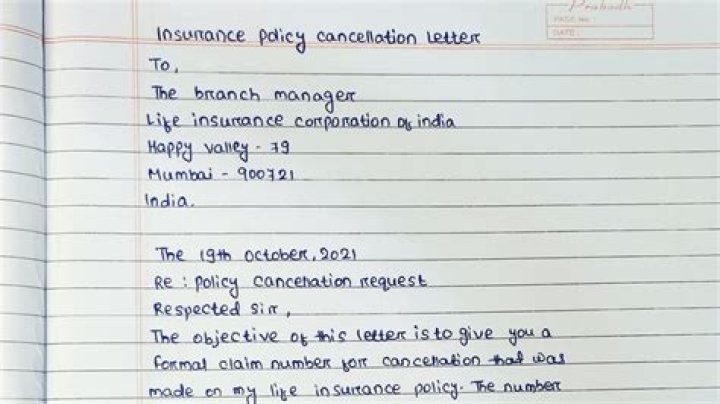 Prabodh
PAGE No.:
DATE:
Insurance policy cancellation Letter
To,
The branch manager
Life insurance corporation of india
Happy valley - 79
Mumbai - 900721
India.
The 19th october, 2021
Re : policy cancellation request
Respected Sir,
The objective of this letter is to give you a
formal claim number for cancellation that was
made on my life insurance policy. The number